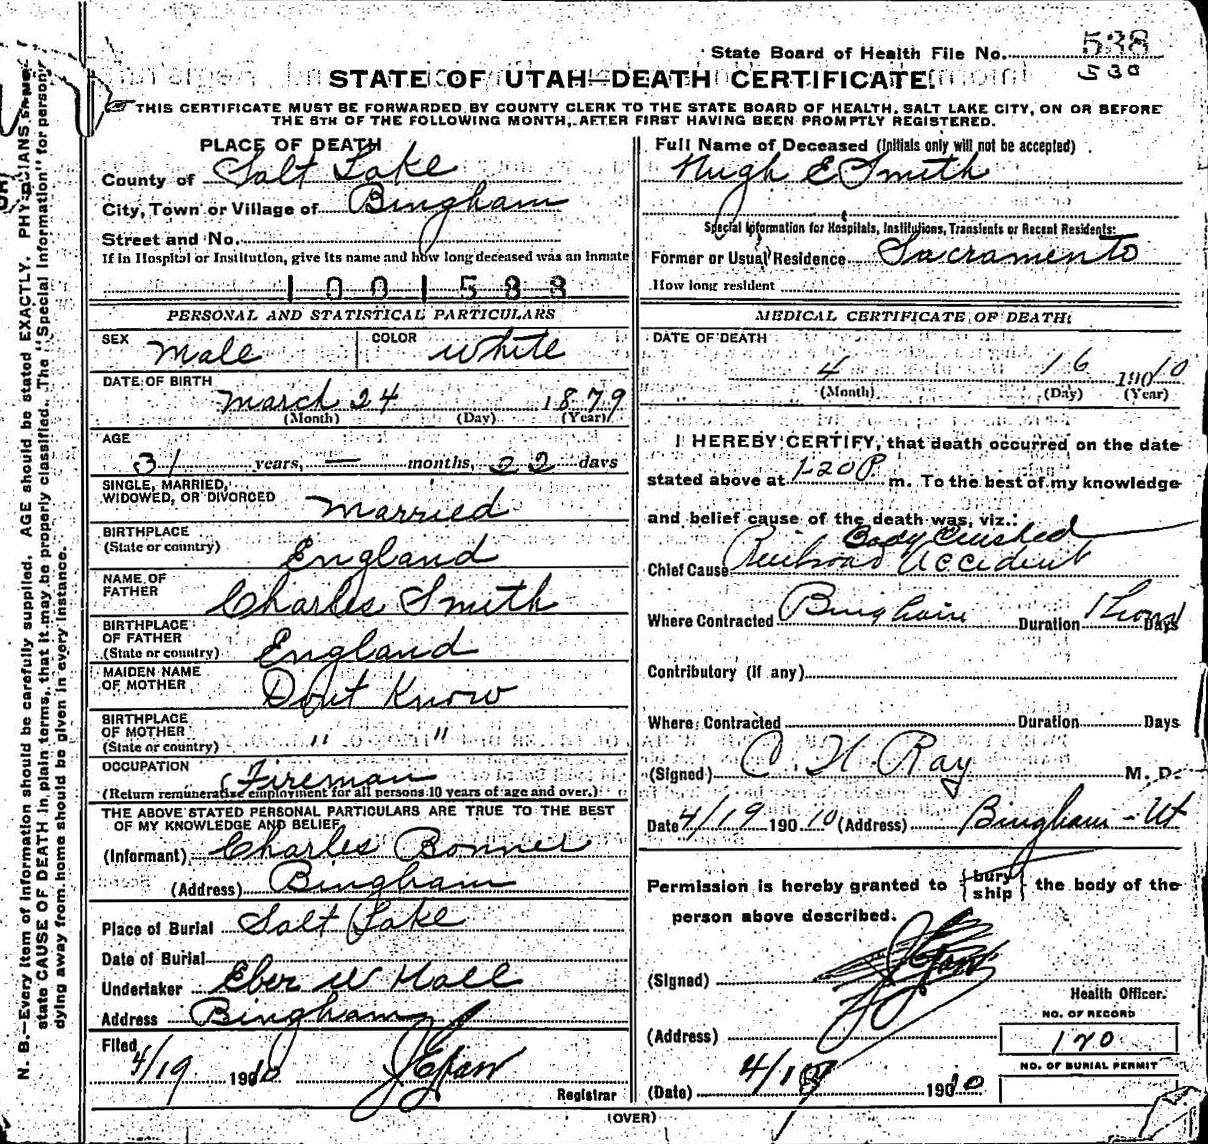 State Board of Health File No. 538
530
STATE OF UTAH—DEATH CERTIFICATE.
THIS CERTIFICATE MUST BE FORWARDED BY COUNTY CLERK TO THE STATE BOARD OF HEALTH, SALT LAKE CITY, ON OR BEFORE
THE 5TH OF THE FOLLOWING MONTH, AFTER FIRST HAVING BEEN PROMPTLY REGISTERED.
N. B.—Every item of information should be carefully supplied. AGE should be stated EXACTLY. PHYSICIANS should
state CAUSE OF DEATH in plain terms, that it may be properly classified. The "Special Information" for persons
dying away from home should be given in every instance.
PLACE OF DEATH
County of Salt Lake
City, Town or Village of Bingham
Street and No.
If in Hospital or Institution, give its name and how long deceased was an inmate
1001588
PERSONAL AND STATISTICAL PARTICULARS
SEX Male COLOR White
DATE OF BIRTH
March 24 1879
(Month) (Day) (Year)
AGE
31 years, — months, 22 days
SINGLE, MARRIED,
WIDOWED, OR DIVORCED Married
BIRTHPLACE
(State or country) England
NAME OF
FATHER Charles Smith
BIRTHPLACE
OF FATHER
(State or country) England
MAIDEN NAME
OF MOTHER Dont Know
BIRTHPLACE
OF MOTHER
(State or country) " "
OCCUPATION Fireman
(Return remunerative employment for all persons 10 years of age and over.)
THE ABOVE STATED PERSONAL PARTICULARS ARE TRUE TO THE BEST
OF MY KNOWLEDGE AND BELIEF
(Informant) Charles Bonner
(Address) Bingham
Place of Burial Salt Lake
Date of Burial
Undertaker Eber W Hall
Address Bingham
Filed
4/19 1910
Registrar
Full Name of Deceased (Initials only will not be accepted)
Hugh E Smith
Special Information for Hospitals, Institutions, Transients or Recent Residents:
Former or Usual Residence Sacramento
How long resident
MEDICAL CERTIFICATE OF DEATH
DATE OF DEATH
4 16 19010
(Month) (Day) (Year)
I HEREBY CERTIFY, that death occurred on the date
stated above at 1-20 P m. To the best of my knowledge
and belief cause of the death was, viz.:
Body Crushed
Chief Cause Railroad Accident
Where Contracted Bingham Duration 1 hour Days
Contributory (if any)
Where Contracted Duration Days
(Signed) C. H Ray M. D.
Date 4/19 19010 (Address) Bingham - Ut
Permission is hereby granted to {bury ship} the body of the
person above described.
(Signed)
Health Officer.
(Address)
NO. OF RECORD
170
NO. OF BURIAL PERMIT
(Date) 4/18 19010
(OVER)